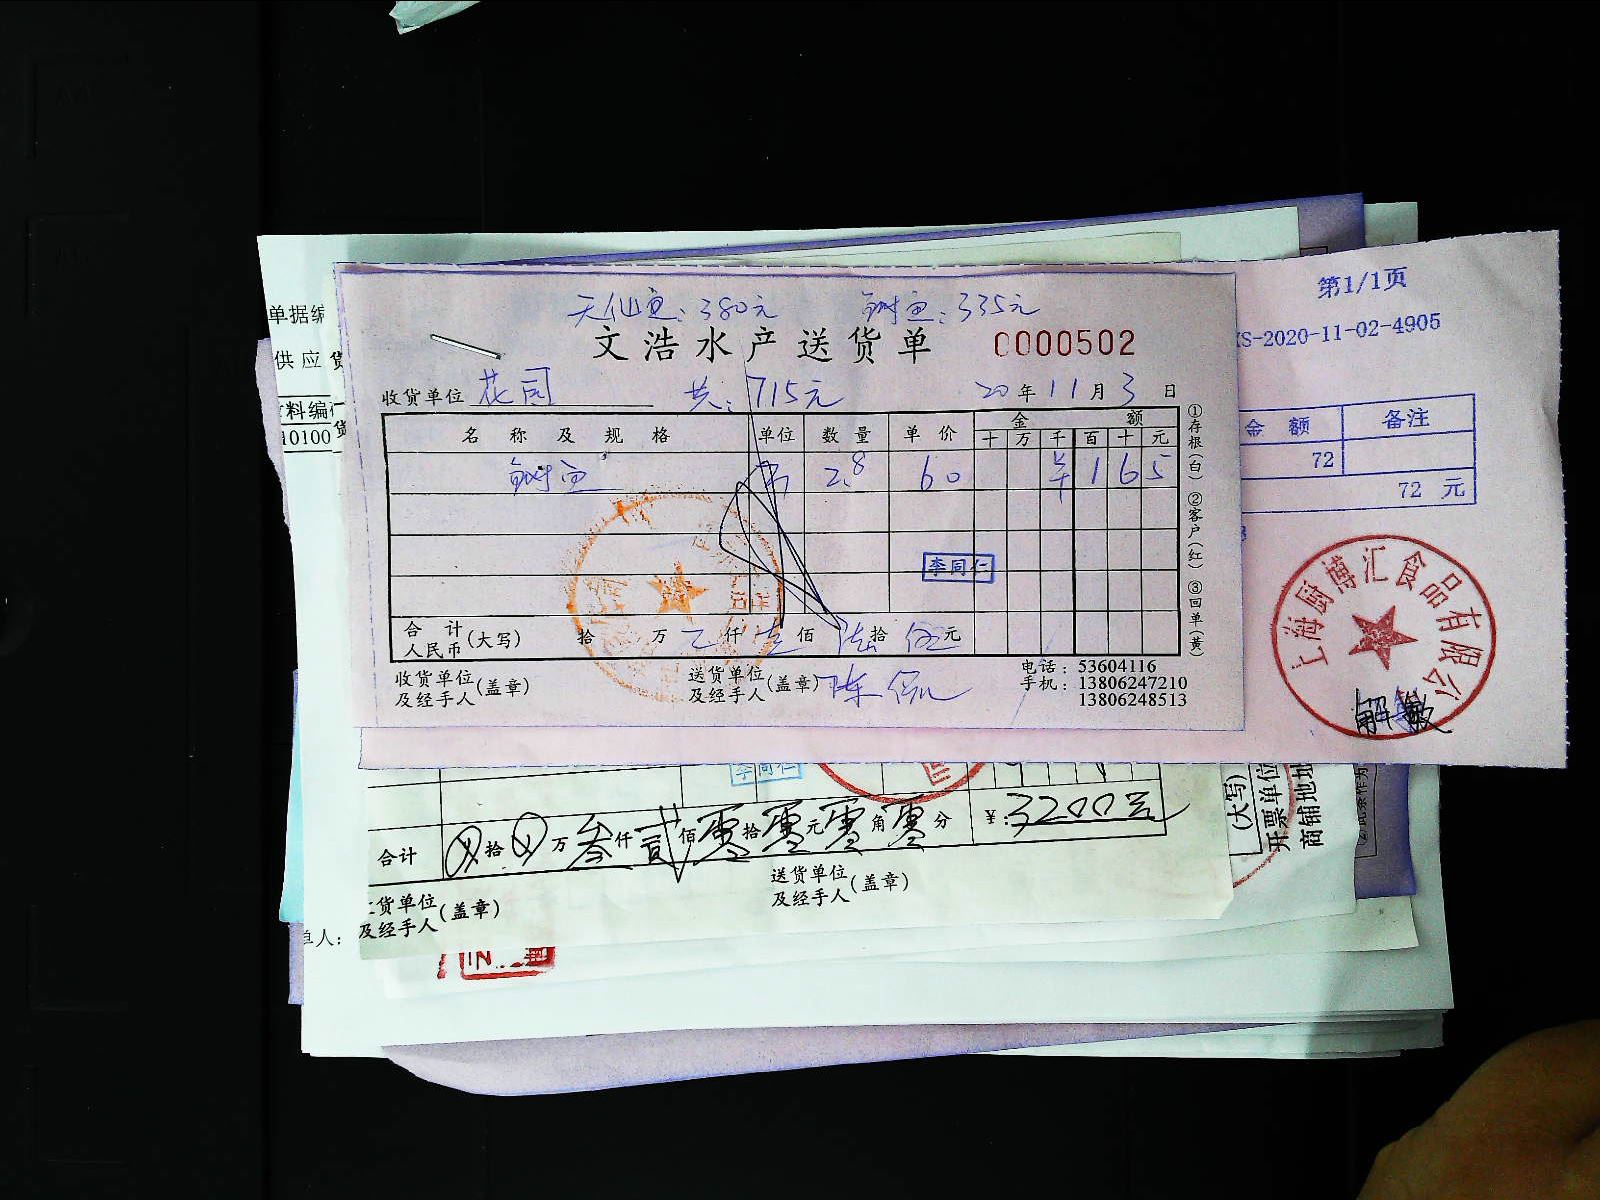 天仙鱼:380元 鲥鱼:335元
文浩水产送货单 0000502
收货单位 花园 共:715元 20年11月3日
名称及规格 单位 数量 单价 金额
十 万 千 百 十 元
鲥鱼 2.8 60 ¥ 1 6 5
李同仁
合计人民币(大写) 拾 万 仟 壹佰 陆拾 伍元
收货单位及经手人(盖章) 送货单位及经手人(盖章) 陈
电话:53604116
手机:13806247210
13806248513
①存根(白) ②客户(红) ③回单(黄)
第1/1页
S-2020-11-02-4905
金额 备注
72
72 元
上海闽博汇食品有限公
解敏
单据编
供应 货
料编
10100 货
李同仁
合计 拾 万 叁仟 贰佰 零拾 零元 零角 零分 ¥:3200元
货单位及经手人(盖章) 送货单位及经手人(盖章)
单人:
(大写)
开票单位
商铺地址